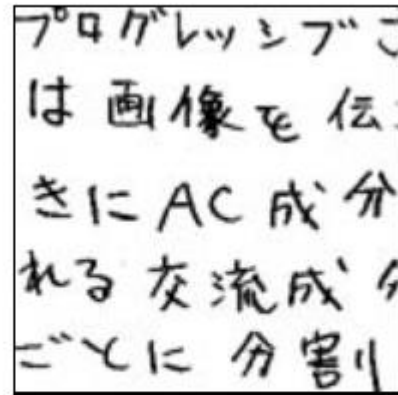 プログレッシブご
は画像を伝
きにAC成分
れる交流成分
ごとに分割